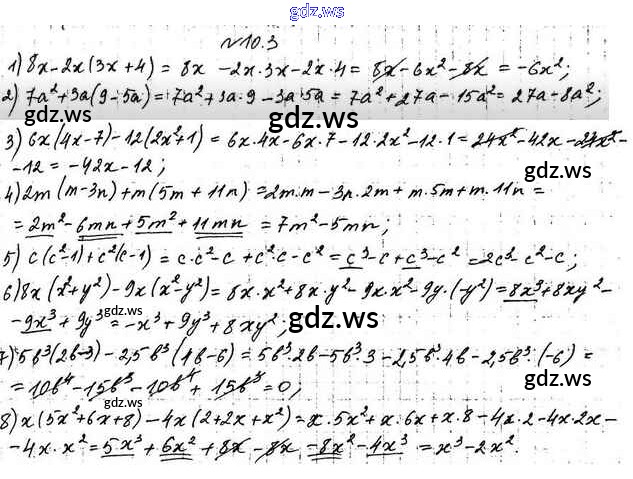 gdz.ws
№10.3
1) 8x-2x(3x+4) = 8x -2x·3x-2x·4 = 8x-6x²-8x = -6x²;
2) 7a²+3a(9-5a)=7a²+3a·9-3a·5a=7a²+27a-15a²=27a-8a²;
gdz.ws
3) 6x(4x-7)-12(2x²+1) = 6x·4x-6x·7-12·2x²-12·1=24x²-42x-24x²-
-12 = -42x-12;
gdz.ws
4) 2m(m-3n)+m(5m+11n) =2m·m-3n·2m+m·5m+m·11n =
= 2m²-6mn+5m²+11mn = 7m²-5mn;
gdz.ws
5) c(c²-1)+c²(c-1) = c·c²-c+c²·c-c² = c³-c+c³-c² =2c³-c²-c;
6) 8x(x²+y²)-9x(x²-y²)= 8x·x²+8x·y²-9x·x²-9y·(-y²)=8x³+8xy²-
gdz.ws
-9x³+9y³=-x³+9y³+8xy²;
gdz.ws
7) 5b³(2b-3)-2,5b³(4b-6)=5b³·2b-5b³·3-2,5b³·4b-2,5b³·(-6) =
= 10b⁴-15b³-10b⁴+15b³=0;
gdz.ws
8) x(5x²+6x+8)-4x(2+2x+x²)=x·5x²+x·6x+x·8-4x·2-4x·2x-
-4x·x²=5x³+6x²+8x-8x-8x²-4x³ = x³-2x².
gdz.ws